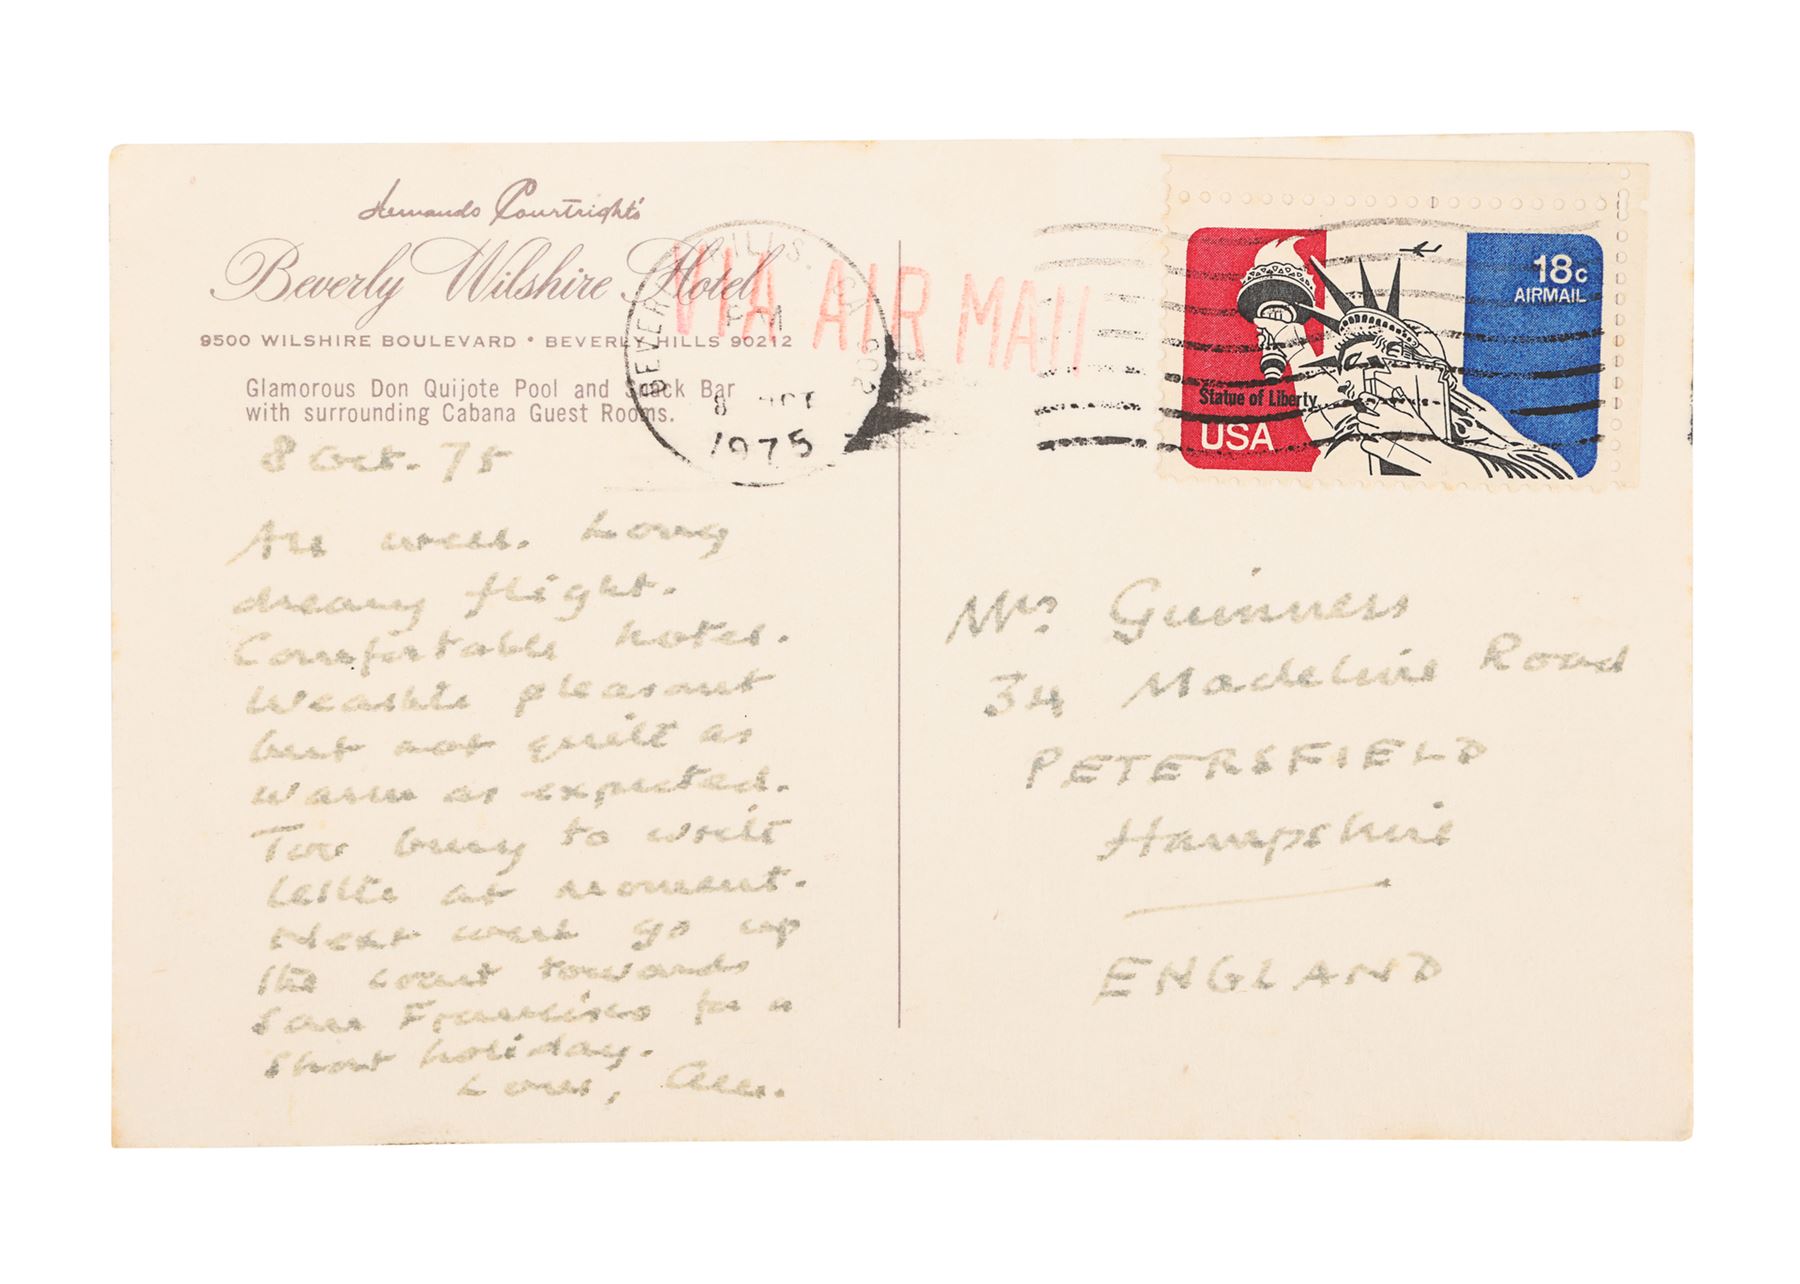 Hernando Courtright's
Beverly Wilshire Hotel
9500 WILSHIRE BOULEVARD • BEVERLY HILLS 90212
Glamorous Don Quijote Pool and Snack Bar
with surrounding Cabana Guest Rooms.
8 Oct. 75
All well. Long
dreary flight.
Comfortable hotel.
Weather pleasant
but not quite as
warm as expected.
Too busy to write
letter at moment.
Next week go up
the coast towards
San Francisco for a
short holiday.
Love, Alec.
BEVERLY HILLS. CA
PM
8 OCT
1975
902
VIA AIR MAIL
18c
AIRMAIL
Statue of Liberty
USA
Mrs Guinness
34 Madeline Road
PETERSFIELD
Hampshire
ENGLAND